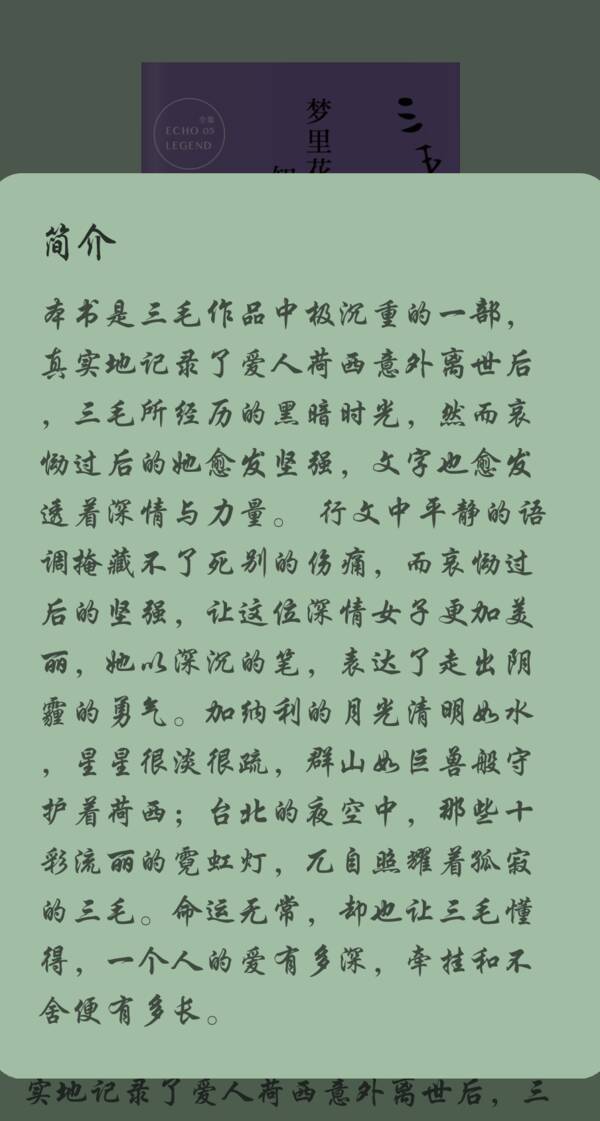 全集
ECHO 05
LEGEND
三毛
梦里花
简介
本书是三毛作品中极沉重的一部，
真实地记录了爱人荷西意外离世后
，三毛所经历的黑暗时光，然而哀
恸过后的她愈发坚强，文字也愈发
透着深情与力量。 行文中平静的语
调掩藏不了死别的伤痛，而哀恸过
后的坚强，让这位深情女子更加美
丽，她以深沉的笔，表达了走出阴
霾的勇气。加纳利的月光清明如水
，星星很淡很疏，群山如巨兽般守
护着荷西；台北的夜空中，那些十
彩流丽的霓虹灯，兀自照耀着孤寂
的三毛。命运无常，却也让三毛懂
得，一个人的爱有多深，牵挂和不
舍便有多长。
实地记录了爱人荷西意外离世后，三